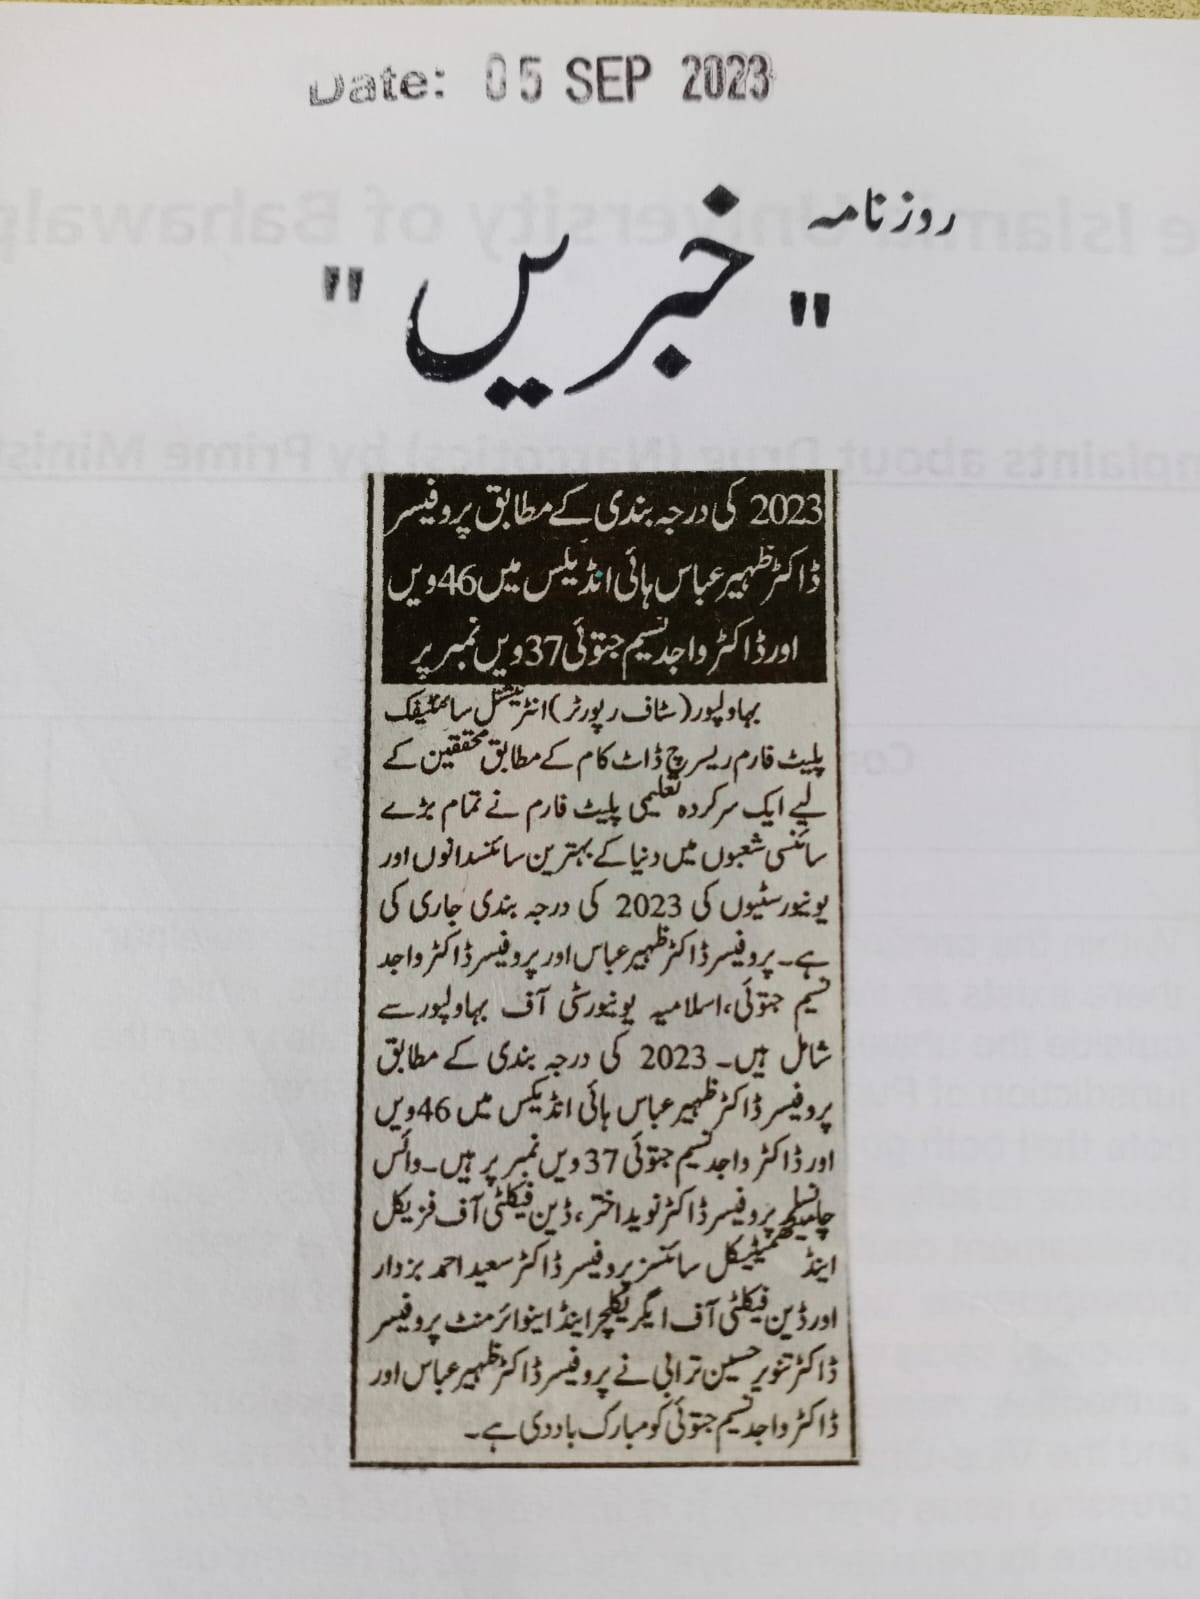 Date: 05 SEP 2023
روزنامہ
"خبریں"
2023 کی درجہ بندی کے مطابق پروفیسر
ڈاکٹر ظہیر عباس ہائی انڈیکس میں 46ویں
اور ڈاکٹر واجد نسیم جتوئی 37ویں نمبر پر
بہاولپور (سٹاف رپورٹر) انٹرنیشنل سائنٹیفک
پلیٹ فارم ریسرچ ڈاٹ کام کے مطابق محققین کے
لیے ایک سرکردہ تعلیمی پلیٹ فارم نے تمام بڑے
سائنسی شعبوں میں دنیا کے بہترین سائنسدانوں اور
یونیورسٹیوں کی 2023 کی درجہ بندی جاری کی
ہے۔ پروفیسر ڈاکٹر ظہیر عباس اور پروفیسر ڈاکٹر واجد
نسیم جتوئی، اسلامیہ یونیورسٹی آف بہاولپور سے
شامل ہیں۔ 2023 کی درجہ بندی کے مطابق
پروفیسر ڈاکٹر ظہیر عباس ہائی انڈیکس میں 46ویں
اور ڈاکٹر واجد نسیم جتوئی 37ویں نمبر پر ہیں۔ وائس
چانسلر پروفیسر ڈاکٹر نوید اختر، ڈین فیکلٹی آف فزیکل
اینڈ میتھمیٹیکل سائنسز پروفیسر ڈاکٹر سعید احمد بزدار
اور ڈین فیکلٹی آف ایگریکلچر اینڈ اینوائرمنٹ پروفیسر
ڈاکٹر تنویر حسین ترابی نے پروفیسر ڈاکٹر ظہیر عباس اور
ڈاکٹر واجد نسیم جتوئی کو مبارک باد دی ہے۔